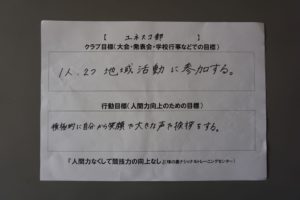 【 ユネスコ部 】
クラブ目標(大会・発表会・学校行事などでの目標)
1人、2つ地域活動に参加する。
行動目標(人間力向上のための目標)
積極的に自分から笑顔で大きな声で挨拶をする。
『人間力なくして競技力の向上なし』(味の素ナショナルトレーニングセンター)